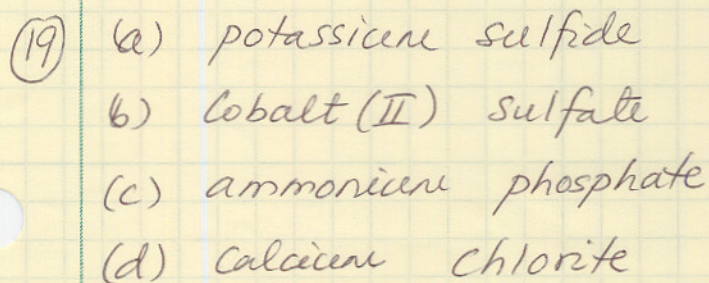 19 (a) potassium sulfide
(b) Cobalt (II) sulfate
(c) ammonium phosphate
(d) Calcium chlorite